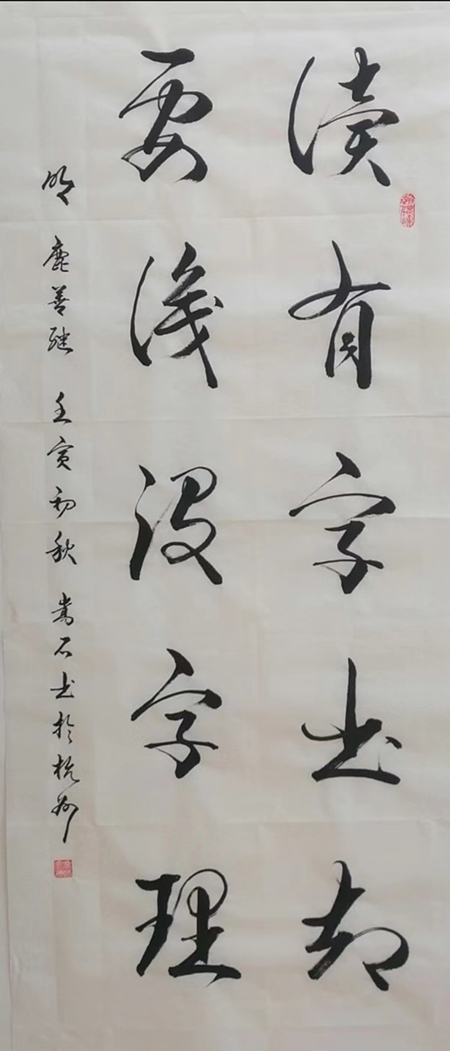 读有字书却
要识没字理
明 鹿善继 壬寅初秋 嵩石书于杭州